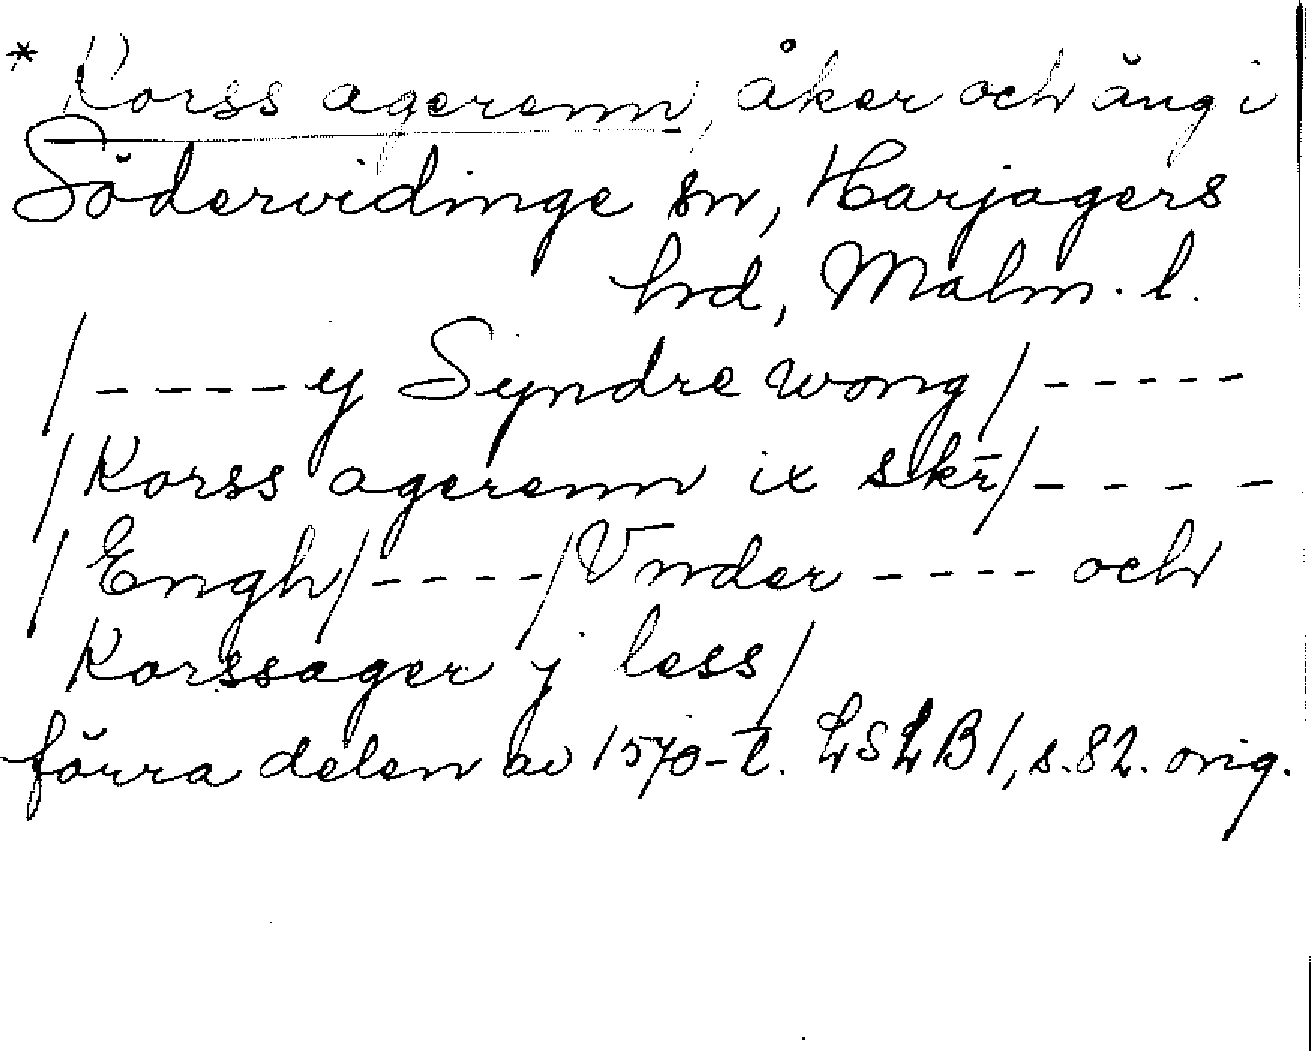 * Korss agerenn, åker och äng i
Södervidinge sn, Harjagers
hd, Malm. l.
/ - - - - - y Syndre wong / - - - - -
/ Korss agerenn ix skr̄ / - - - - -
/ Engh / - - - - / Vnder - - - - och
Korssager j less /
förra delen av 1570-t. LSLB 1, s. 82. orig.